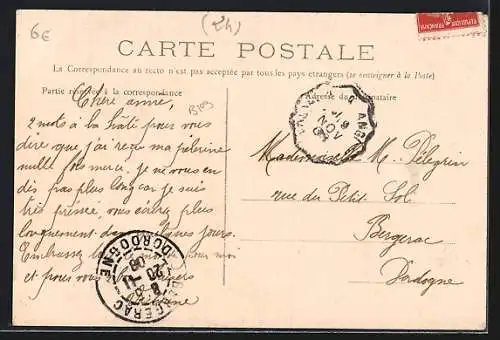 6€
(24)
CARTE POSTALE
La Correspondance au recto n'est pas acceptée par tous les pays étrangers (se renseigner à la Poste)
Partie réservée à la correspondance
Adresse du destinataire
Chère amie,
2 mots à la hâte pour vous
dire que j'ai reçu ma pèlerine
mille fois merci. Je ne vous en
dis pas plus long car je suis
très pressée, vous écrirez plus
longuement dans quelques jours.
Embrassez pour moi
et pour vous
Mademoiselle M. Pélegrin
rue du Petit Sol
Bergerac
Dordogne
BERGERAC
DORDOGNE